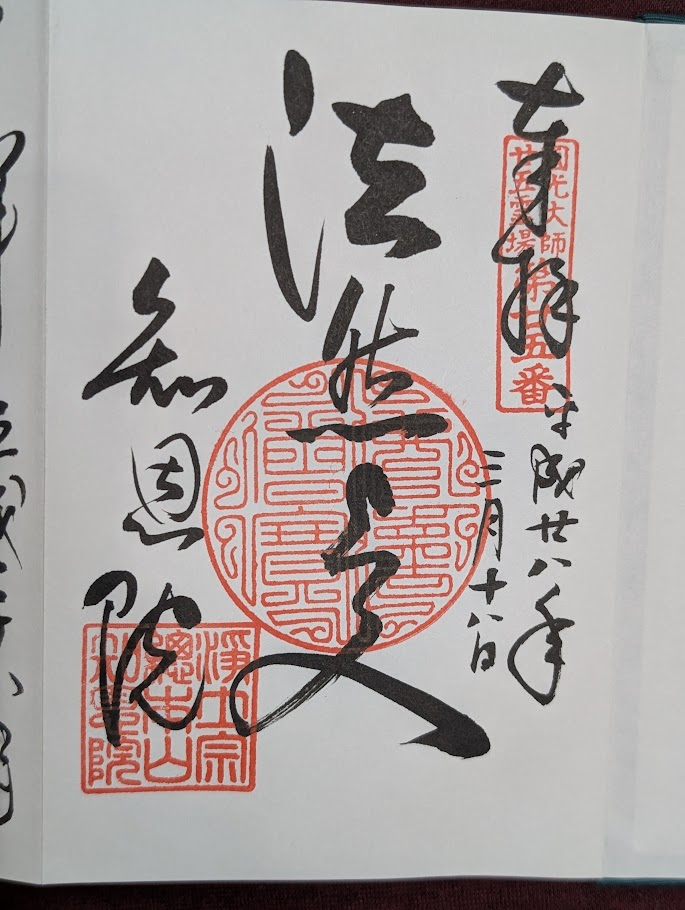 奉拝
圓光大師
廿五霊場
第廿五番
平成廿八年
三月十八日
法然上人
知恩院
淨土宗
總本山
知恩院